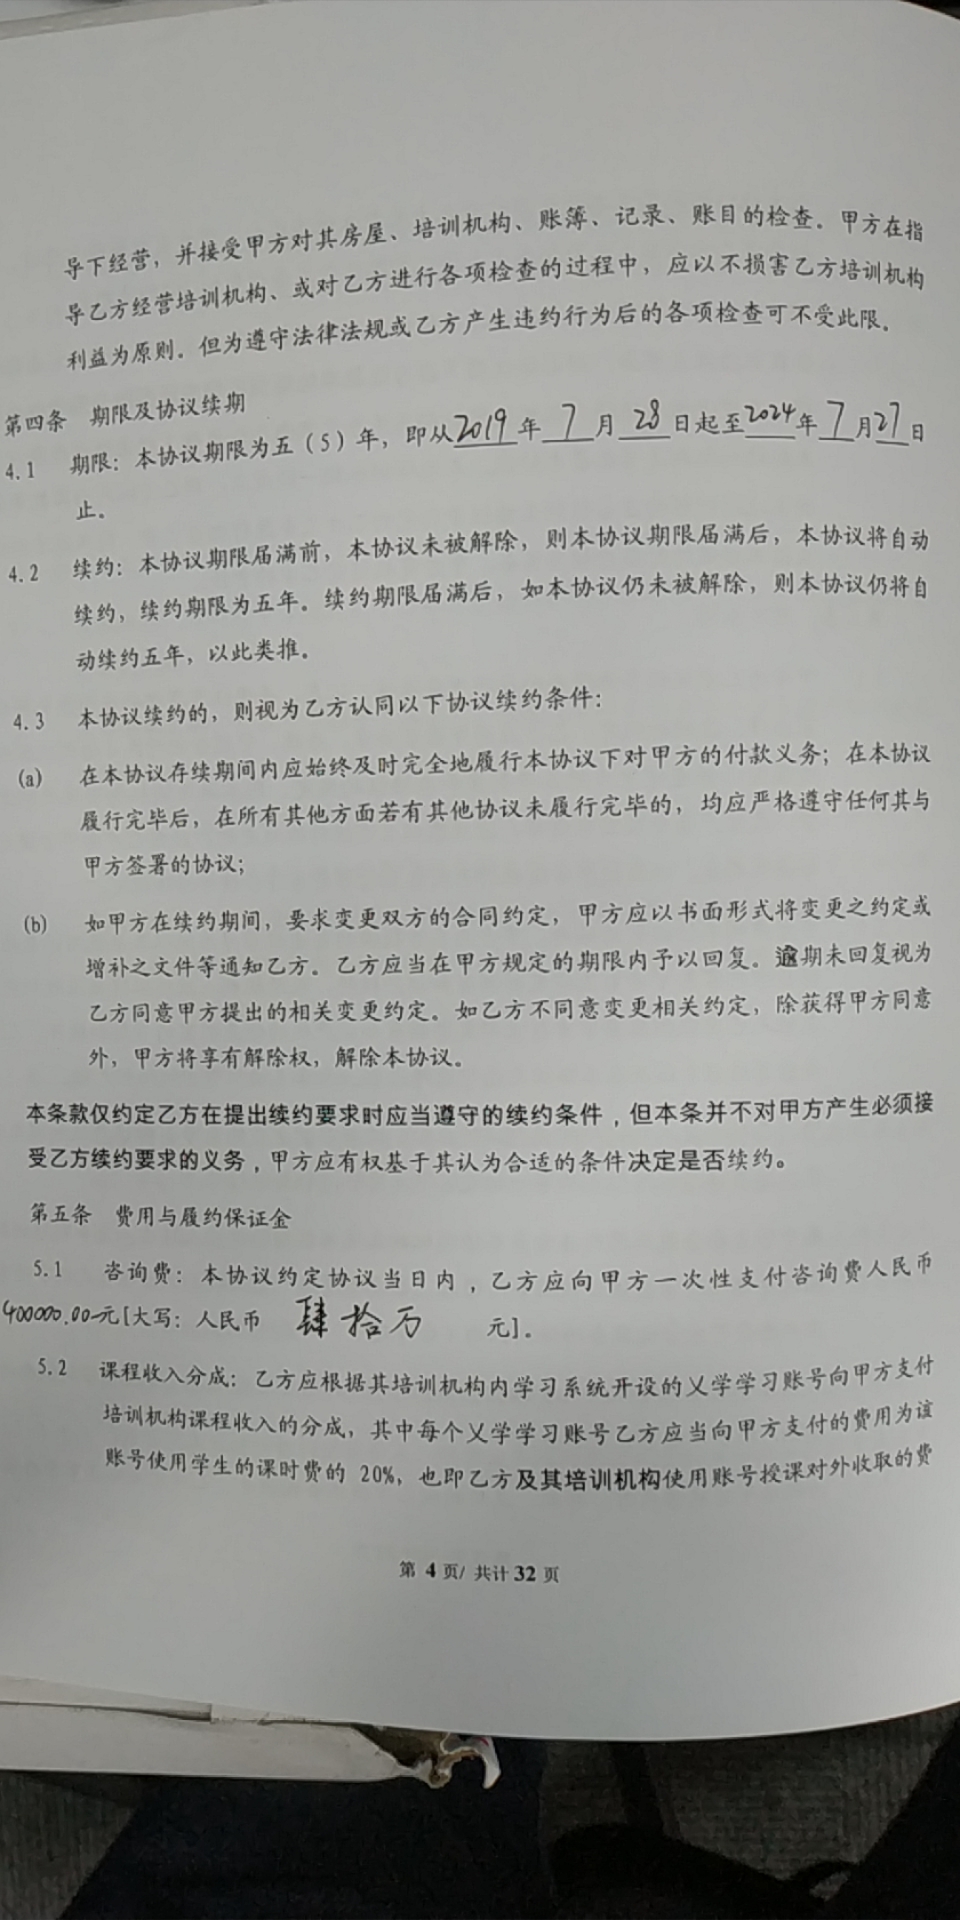 导下经营，并接受甲方对其房屋、培训机构、账簿、记录、账目的检查。甲方在指
导乙方经营培训机构、或对乙方进行各项检查的过程中，应以不损害乙方培训机构
利益为原则。但为遵守法律法规或乙方产生违约行为后的各项检查可不受此限。
第四条 期限及协议续期
4.1 期限：本协议期限为五（5）年，即从2019年7月28日起至2024年7月27日
止。
4.2 续约：本协议期限届满前，本协议未被解除，则本协议期限届满后，本协议将自动
续约，续约期限为五年。续约期限届满后，如本协议仍未被解除，则本协议仍将自
动续约五年，以此类推。
4.3 本协议续约的，则视为乙方认同以下协议续约条件：
(a) 在本协议存续期间内应始终及时完全地履行本协议下对甲方的付款义务；在本协议
履行完毕后，在所有其他方面若有其他协议未履行完毕的，均应严格遵守任何其与
甲方签署的协议；
(b) 如甲方在续约期间，要求变更双方的合同约定，甲方应以书面形式将变更之约定或
增补之文件等通知乙方。乙方应当在甲方规定的期限内予以回复。逾期未回复视为
乙方同意甲方提出的相关变更约定。如乙方不同意变更相关约定，除获得甲方同意
外，甲方将享有解除权，解除本协议。
本条款仅约定乙方在提出续约要求时应当遵守的续约条件，但本条并不对甲方产生必须接
受乙方续约要求的义务，甲方应有权基于其认为合适的条件决定是否续约。
第五条 费用与履约保证金
5.1 咨询费：本协议约定协议当日内，乙方应向甲方一次性支付咨询费人民币
400000.00元[大写：人民币 肆拾万 元]。
5.2 课程收入分成：乙方应根据其培训机构内学习系统开设的乂学学习账号向甲方支付
培训机构课程收入的分成，其中每个乂学学习账号乙方应当向甲方支付的费用为该
账号使用学生的课时费的 20%，也即乙方及其培训机构使用账号授课对外收取的费
第 4 页/ 共计 32 页